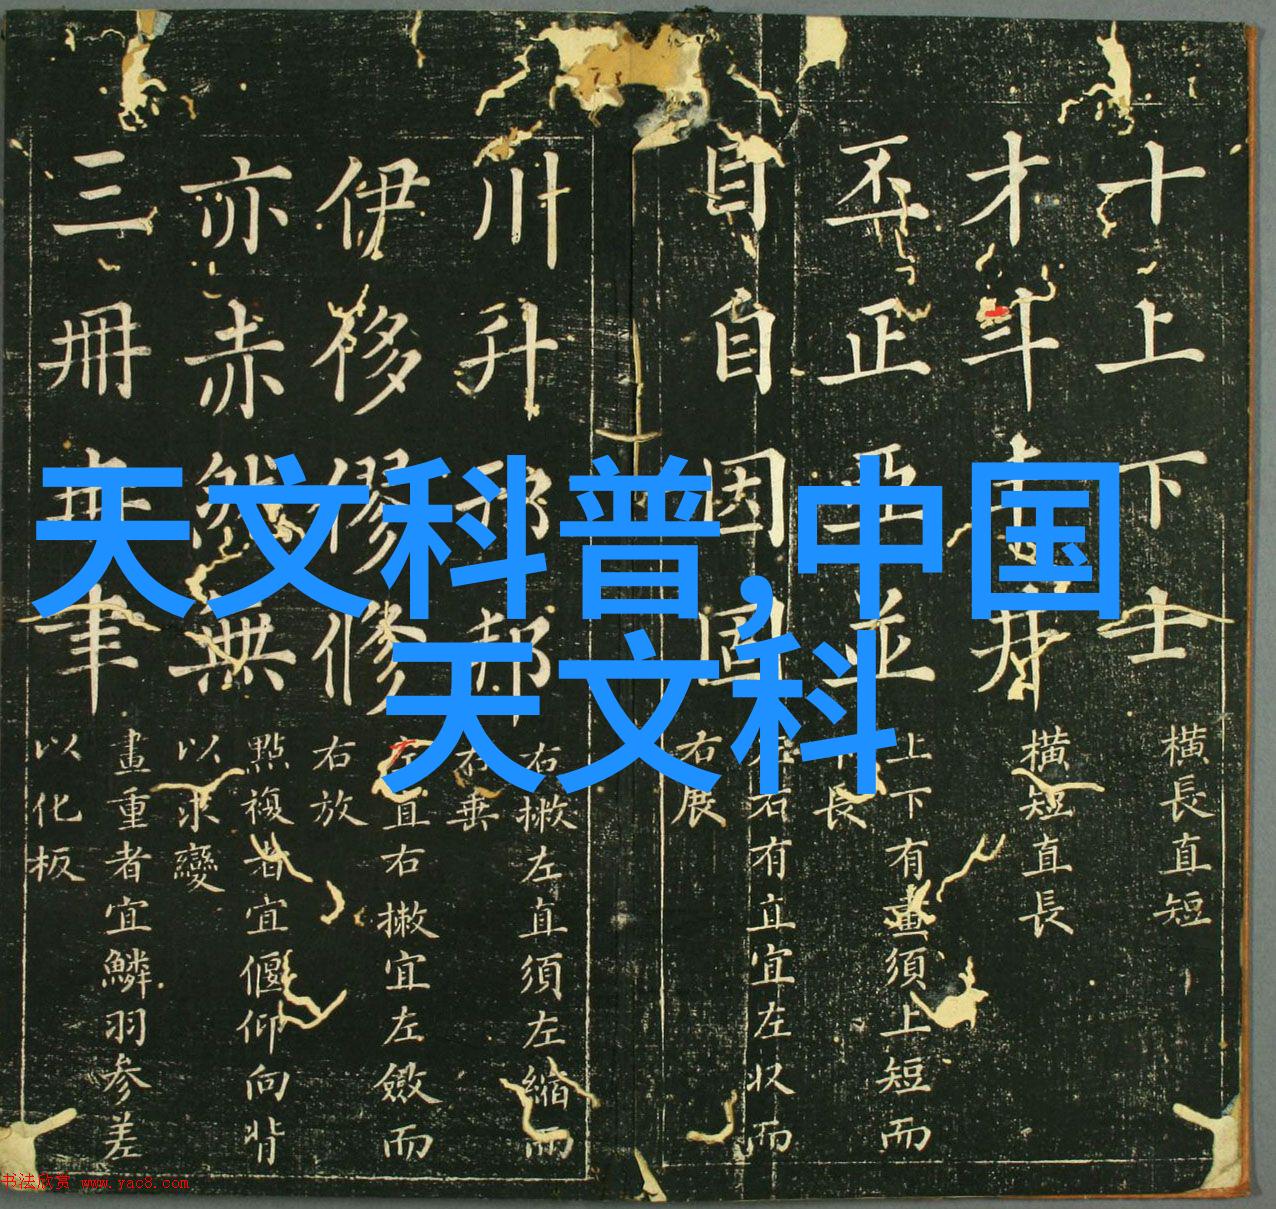 天文科普,中国
天文科
十上下士
横長直短
才斗井
横短直長
丕正亞並
上下有畫須上短而
下長
目自因固
左右有直宜左收而
右展
川升邪邦
右撇左直須左縮而
右垂
伊侈僇修
左直右撇宜左斂而
右放
亦赤然無
點複者宜偃仰向背
以求變
三冊聿
畫重者宜鱗羽参差
以化板
书法欣赏 www.yac8.com